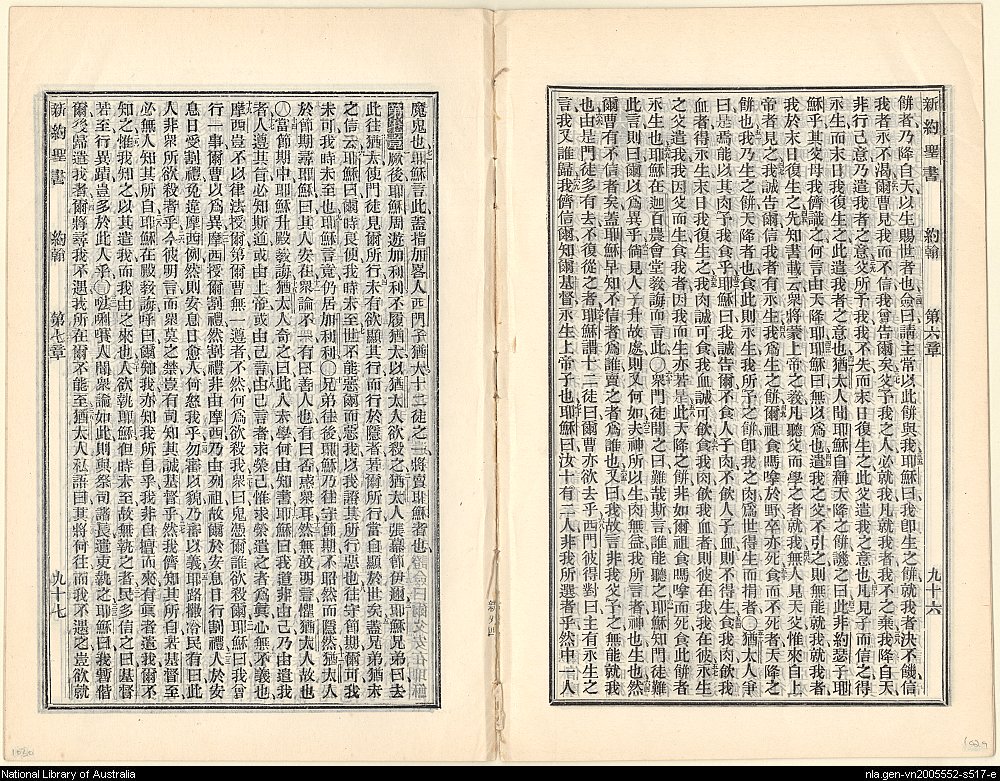 新約聖書 約翰 第六章 九十六
餅者乃降自天以生賜世者也僉曰請主常以此餅與我耶穌曰我卽生之餅就我者決不饑信
我者永不渴爾曹見我而不信我曾吿爾矣父予我之人必就我凡就我者我不之棄我降自天
非行己意乃遣我者之意父所予我我不失而末日復生之此父遣我之意也凡見子而信之得
永生而末日我復生之此遣我者之意也猶太人聞耶穌自稱天降之餅譏之曰此非約瑟子耶
穌乎其父母我儕識之何言由天降耶耶穌曰無以爲也遣我之父不引之則無能就我就我者
我於末日復生之先知書載云衆將蒙上帝之敎凡聽父而學之者就我無人見天父惟來自上
帝者見之我誠吿爾信我者有永生我爲生之餅爾祖食嗎嗱於野卒亦死食而不死者天降之
餅也我乃生之餅天降者也食此則永生我所予之餅卽我之肉爲世得生而捐者〇猶太人爭
曰是焉能以其肉予我食耶耶穌曰我誠吿爾不食人子肉不飮人子血則不得生食我肉飮我
血者得永生末日我復生之我肉誠可食我血誠可飮食我肉飮我血者則彼在我我在彼永生
之父遣我我因父而生食我者因我而生亦若是此天降之餅非如爾祖食嗎嗱而死食此餅者
永生也耶穌在迦百農會堂敎誨而言此〇衆門徒聞之曰難哉斯言誰能聽之耶穌知門徒難
此言則曰爾以爲異乎倘見人子升故處則又何如夫神所以生肉無益我所言者神也生也然
爾曹有不信者矣蓋耶穌早知不信者爲誰賣之者爲誰也又曰我故言非我父予之無能就我
也由是門徒多有去不復從之者耶穌謂十二徒曰爾曹亦欲去乎西門彼得對曰主有永生之
言我又誰歸我儕信爾知爾基督永生上帝子也耶穌曰汝十有二人非我所選者乎然中一人
魔鬼也耶穌言此蓋指加畧人西門子猶大十二徒之一將賣耶穌者也
厥後耶穌周遊加利利不履猶太以猶太人欲殺之猶太人張幕節伊邇耶穌兄弟曰去
此往猶太使門徒見爾所行未有欲顯其行而行於隱者若爾所行當自顯於世矣蓋兄弟猶未
之信云耶穌曰爾時良便我時未至世不能惡爾而惡我以我證其所行惡也往守節期爾可我
未可我時未至也耶穌言竟仍居加利利〇兄弟往後耶穌乃往守節期不昭然而隱然猶太人
於節期尋耶穌曰其人安在衆論不一有曰善人也有曰否惑衆耳然無敢明言懼猶太人故也
〇當節期中耶穌升殿敎誨猶太人奇之曰此人未學何由知書耶穌曰我道非由己乃由遣我
者人遵其旨必知斯道或由上帝或由己言由己言者求榮己惟求榮遣之者爲眞心無不義也
摩西豈不以律法授爾第爾曹無一遵者不然何爲欲殺我衆曰鬼憑爾誰欲殺爾耶穌曰我曾
行一事爾曹以爲異摩西授爾割禮然割禮非由摩西乃由列祖故爾於安息日行割禮人於安
息日受割禮免違摩西例然則安息日愈人何怒我乎勿審以貌乃審以義耶路撒冷民有曰此
人非衆所欲殺者乎今彼明言而衆莫之禁豈有司知其誠基督乎然我儕知其所自若基督至
必無人知其所自耶穌在殿敎誨呼曰爾知我亦知我所自乎我非自擅而來有眞者遣我爾不
知之惟我知之以其遣我而我由之來也人欲執耶穌但時未至故無執之者民多信之曰基督
若至行異蹟豈多於此人乎〇𠵽唎㘔人聞衆論如此則與祭司諸長遣吏執之耶穌曰我暫偕
爾後歸遣我者爾將尋我不遇我所在爾不能至猶太人私語曰其將何往而我不遇之豈欲就
新約聖書 約翰 第七章 九十七
1030
1029
National Library of Australia
nla.gen-vn2005552-s517-e